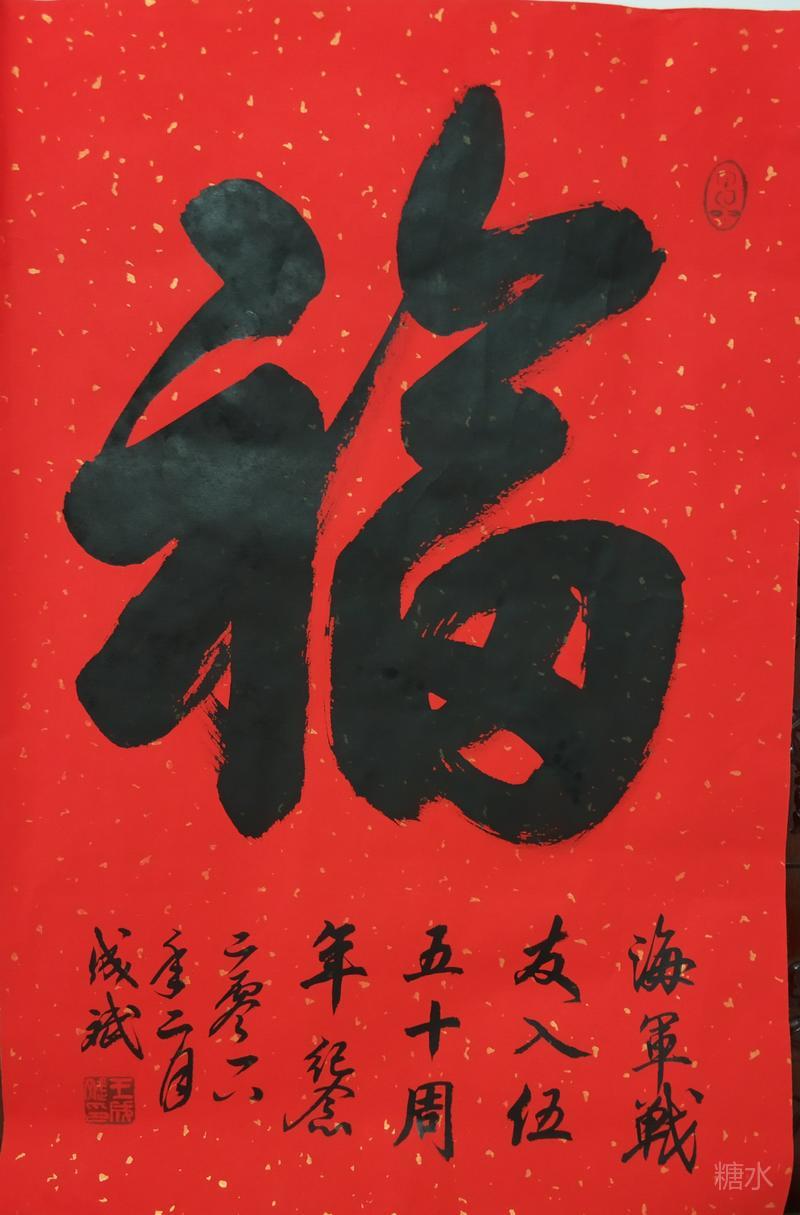 福
海軍戦
友入伍
五十周
年纪念
二零一六
年二月
成斌
王成斌印
糖水